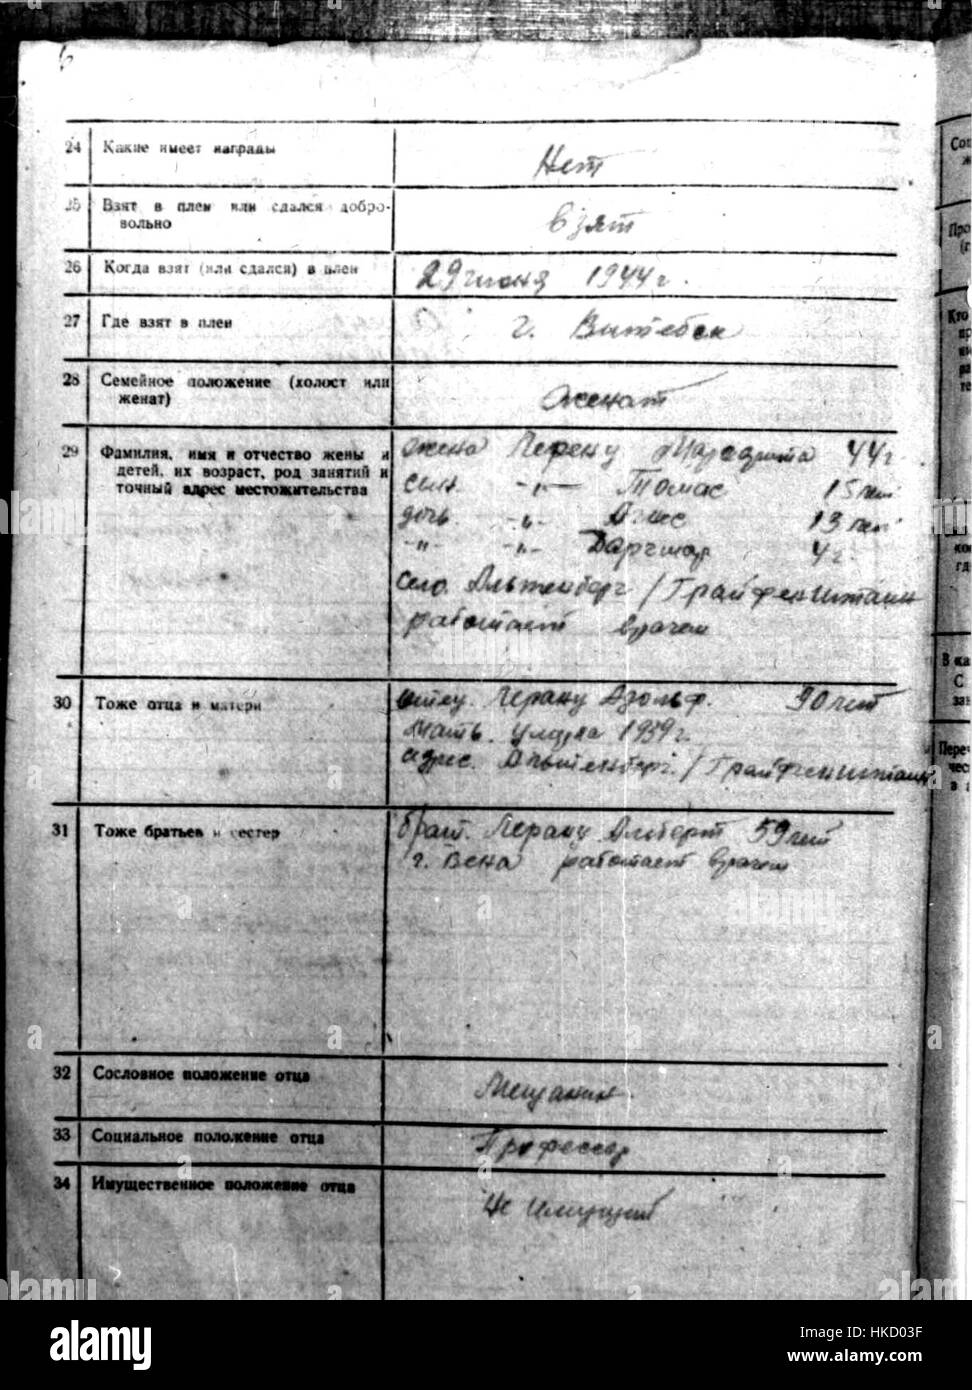 6
24 Какие имеет награды Нет
25 Взят в плен или сдался добро-
вольно взят
26 Когда взят (или сдался) в плен 29 июня 1944 г.
27 Где взят в плен г. Витебск
28 Семейное положение (холост или
женат) женат
29 Фамилия, имя и отчество жены и
детей, их возраст, род занятий и
точный адрес местожительства
жена Маргарита 44 г.
сын -"- Томас 15 лет
дочь -"- Агнес 13 лет
-"- -"- 4 г.
село Альтенберг / Грайфенштаин
работает врачем
30 Тоже отца и матери
отец Лоренц Адольф. 90 лет
мать. умерла 1939 г.
адрес. Альтенберг. / Грайфенштаин
31 Тоже братьев и сестер
брат. Лоренц Альберт 59 лет
г. Вена работает врачем
32 Сословное положение отца Мещанин
33 Социальное положение отца Профессор
34 Имущественное положение отца Не имущий
Про
Кто
В ка
С
Пере
чес
alamy
Image ID: HKD03F
www.alamy.com